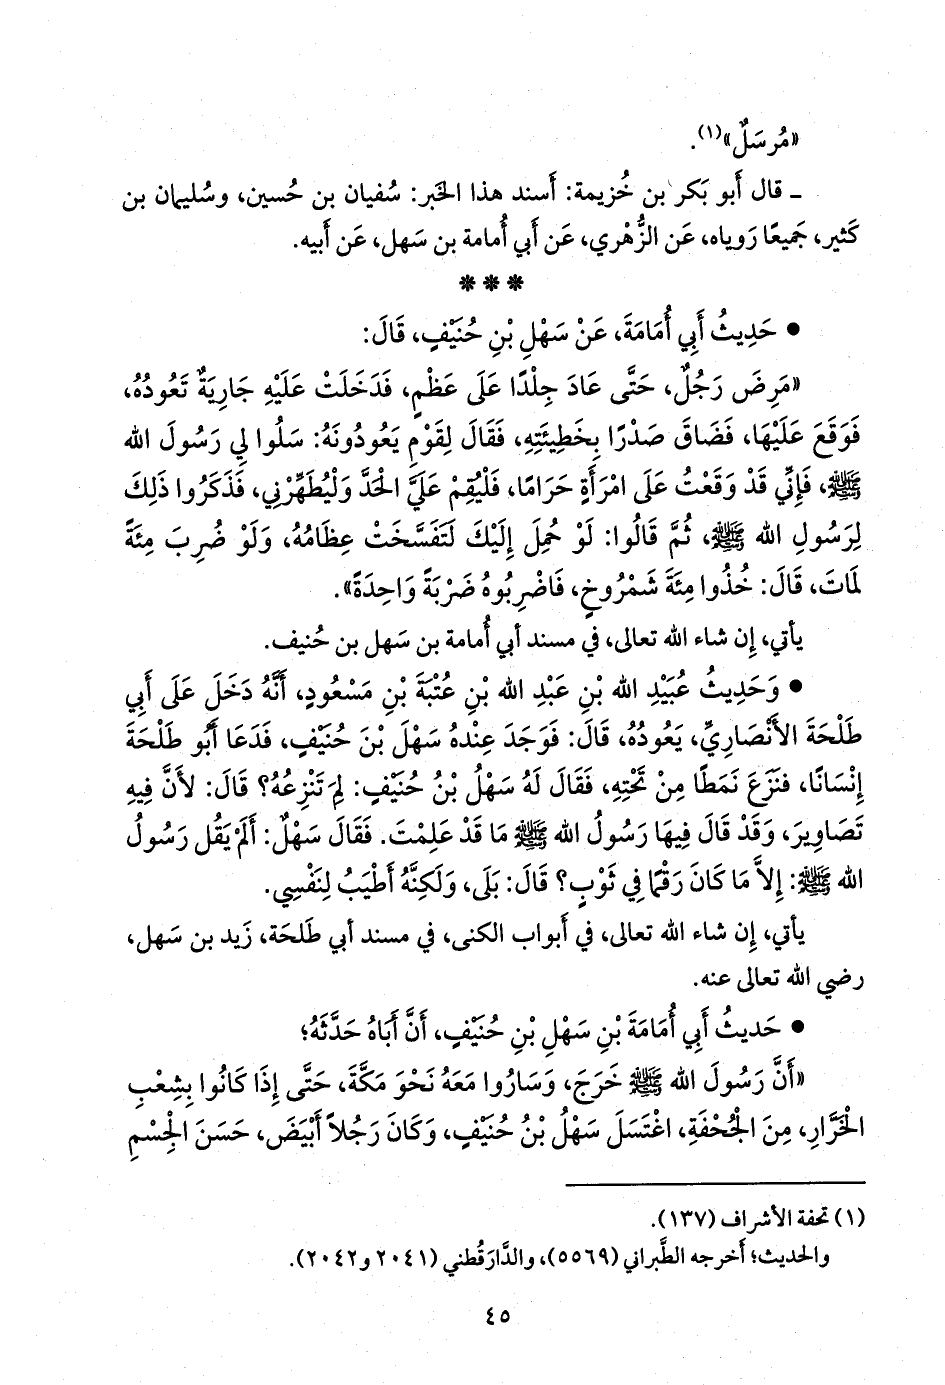 «مُرسَلٌ»(١).
ـ قال أَبو بَكر بن خُزيمة: أَسند هذا الخبر: سُفيان بن حُسين، وسُليمان بن
كَثير، جَميعًا رَوياه، عَن الزُّهْري، عَن أَبي أُمامة بن سَهل، عَن أَبيه.
* * *
● حَدِيثُ أَبِي أُمَامَةَ، عَنْ سَهْلِ بْنِ حُنَيْفٍ، قَالَ:
«مَرِضَ رَجُلٌ، حَتَّى عَادَ جِلْدًا عَلَى عَظْمٍ، فَدَخَلَتْ عَلَيْهِ جَارِيَةٌ تَعُودُهُ،
فَوَقَعَ عَلَيْهَا، فَضَاقَ صَدْرًا بِخَطِيئَتِهِ، فَقَالَ لِقَوْمٍ يَعُودُونَهُ: سَلُوا لِي رَسُولَ الله
ﷺ، فَإِنِّي قَدْ وَقَعْتُ عَلَى امْرَأَةٍ حَرَامًا، فَلْيُقِمْ عَلَيَّ الْحَدَّ وَلْيُطَهِّرْنِي، فَذَكَرُوا ذَلِكَ
لِرَسُولِ الله ﷺ، ثُمَّ قَالُوا: لَوْ حُمِلَ إِلَيْكَ لَتَفَسَّخَتْ عِظَامُهُ، وَلَوْ ضُرِبَ مِئَةً
لَمَاتَ، قَالَ: خُذُوا مِئَةَ شَمْرُوخٍ، فَاضْرِبُوهُ ضَرْبَةً وَاحِدَةً».
يأتي، إِن شاء الله تعالى، في مسند أَبي أُمامة بن سَهل بن حُنيف.
● وَحَدِيثُ عُبَيْدِ الله بْنِ عَبْدِ الله بْنِ عُتْبَةَ بْنِ مَسْعُودٍ، أَنَّهُ دَخَلَ عَلَى أَبِي
طَلْحَةَ الأَنْصَارِيِّ، يَعُودُهُ، قَالَ: فَوَجَدَ عِنْدَهُ سَهْلَ بْنَ حُنَيْفٍ، فَدَعَا أَبُو طَلْحَةَ
إِنْسَانًا، فَنَزَعَ نَمَطًا مِنْ تَحْتِهِ، فَقَالَ لَهُ سَهْلُ بْنُ حُنَيْفٍ: لِمَ تَنْزِعُهُ؟ قَالَ: لأَنَّ فِيهِ
تَصَاوِيرَ، وَقَدْ قَالَ فِيهَا رَسُولُ الله ﷺ مَا قَدْ عَلِمْتَ. فَقَالَ سَهْلٌ: أَلَمْ يَقُل رَسُولُ
الله ﷺ: إِلاَّ مَا كَانَ رَقْمًا فِي ثَوْبٍ؟ قَالَ: بَلَى، وَلَكِنَّهُ أَطْيَبُ لِنَفْسِي.
يأتي، إِن شاء الله تعالى، في أَبواب الكنى، في مسند أَبي طَلحَة، زَيد بن سَهل،
رضي الله تعالى عنه.
● حَديثُ أَبِي أُمَامَةَ بْنِ سَهْلِ بْنِ حُنَيْفٍ، أَنَّ أَبَاهُ حَدَّثَهُ؛
«أَنَّ رَسُولَ الله ﷺ خَرَجَ، وَسَارُوا مَعَهُ نَحْوَ مَكَّةَ، حَتَّى إِذَا كَانُوا بِشِعْبِ
الْخَرَّارِ، مِنَ الْجُحْفَةِ، اغْتَسَلَ سَهْلُ بْنُ حُنَيْفٍ، وَكَانَ رَجُلاً أَبْيَضَ، حَسَنَ الْجِسْمِ
(١) تحفة الأشراف (١٣٧).
والحديث؛ أَخرجه الطَّبراني (٥٥٦٩)، والدَّارَقُطني (٢٠٤١ و٢٠٤٢).
٤٥